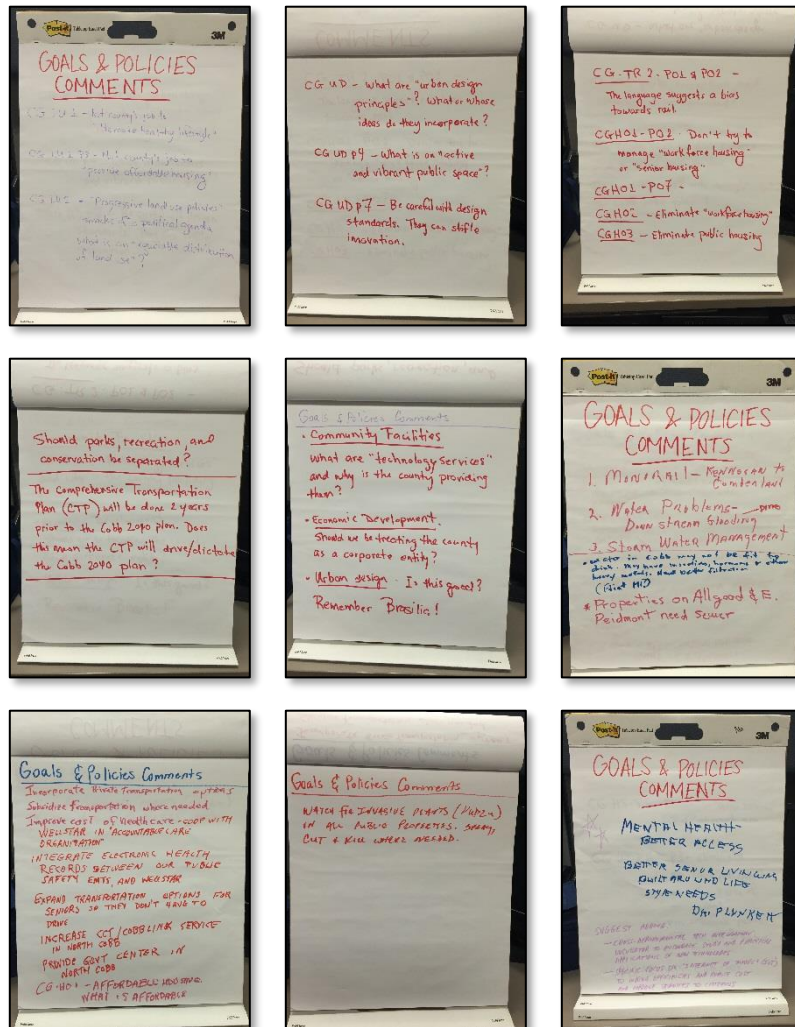 Post-it
3M
GOALS & POLICIES
COMMENTS
"increase healthy lifestyle"
"promote affordable housing"
"Progressive land use policies"
political agenda
what is an "equitable distribution
of land use"?
CG UD - What are "urban design
principles"? What or whose
ideas do they incorporate?
CG UD P4 - What is an "active
and vibrant public space"?
CG UD P7 - Be careful with design
standards. They can stifle
inovation.
CG-TR 2-PO1 & PO2 -
The language suggests a bias
towards rail.
CGHO1-PO2 - Don't try to
manage "workforce housing"
or "senior housing"
CGHO1-PO7 -
CGHO2 - Eliminate "workforce housing"
CGHO3 - Eliminate public housing
Should parks, recreation, and
conservation be separated?
The Comprehensive Transportation
Plan (CTP) will be done 2 years
prior to the Cobb 2040 plan. Does
this mean the CTP will drive/dictate
the Cobb 2040 plan?
Goals & Policies Comments
• Community Facilities
What are "technology services"
and why is the county providing
them?
• Economic Development.
Should we be treating the county
as a corporate entity?
• Urban design - Is this good?
Remember Brasilia!
Post-it
3M
GOALS & POLICIES
COMMENTS
1. Monorail - Kennesaw to
Cumberland
2. Water Problems -
Down stream flooding
3. Storm Water Management
• Water in Cobb may not be fit to
drink.
heavy metals. Need better filtration
* Properties on Allgood & E.
Peidmont need sewer
Goals & Policies Comments
Incorporate Private Transportation options
Subsidize Transportation where needed
Improve cost of Healthcare - coop with
WELLSTAR IN "ACCOUNTABLE CARE
ORGANIZATION
INTEGRATE ELECTRONIC HEALTH
RECORDS BETWEEN OUR PUBLIC
SAFETY EMTS, AND WELLSTAR
EXPAND TRANSPORTATION OPTIONS FOR
SENIORS SO THEY DON'T HAVE TO
DRIVE
INCREASE CCT/COBBLINC SERVICE
IN NORTH COBB
PROVIDE GOVT CENTER IN
NORTH COBB
CG-HO1 - AFFORDABLE HOUSING
WHAT IS AFFORDABLE
Goals & Policies Comments
WATCH FOR INVASIVE PLANTS (KUDZU)
IN ALL PUBLIC PROPERTIES. SPRAY,
CUT & KILL WHERE NEEDED.
Post-it
3M
GOALS & POLICIES
COMMENTS
MENTAL HEALTH-
BETTER ACCESS
BETTER SENIOR LIVING
BUILT AROUND LIFE
STYLE NEEDS
DR. PLUNKETT